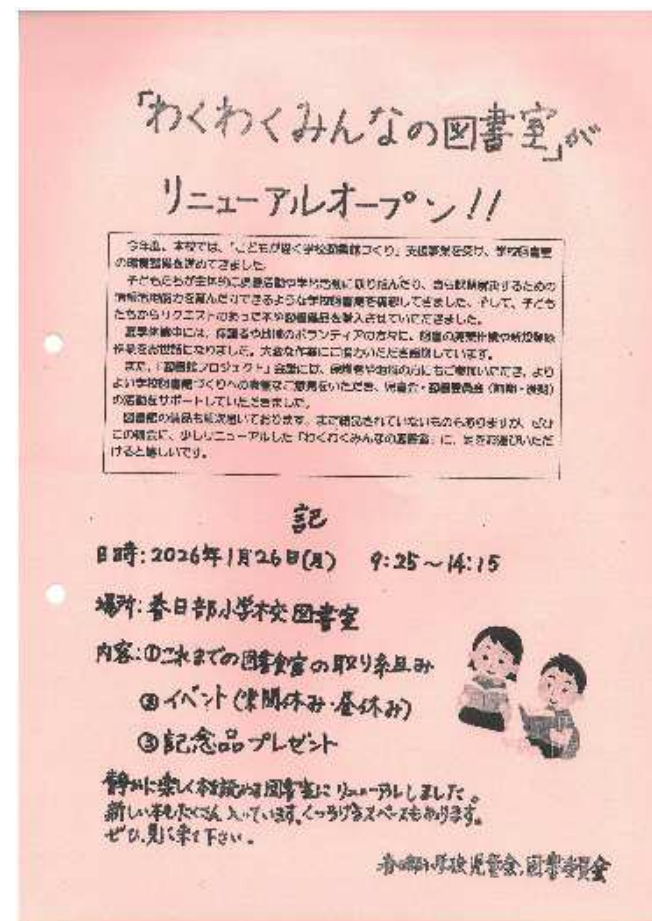 「わくわくみんなの図書室」が
リニューアルオープン!!
今年度、本校では、「こどもが磨く学校図書館づくり」支援事業を受け、学校図書室
の環境整備を進めてきました。
子どもたちが主体的に読書活動や学習活動に取り組んだり、自ら課題解決するための
情報活用能力を育んだりできるような学校図書館を構想してきました。そして、子ども
たちからリクエストのあった本や図書備品を購入させていただきました。
夏季休業中には、保護者や地域のボランティアの方々に、図書の廃棄作業や新規登録
作業をお世話になりました。大変な作業にご協力いただき感謝しています。
また、「図書館プロジェクト」会議には、保護者や地域の方にもご参加いただき、より
よい学校図書館づくりへの貴重なご意見をいただき、児童会・図書委員会(前期・後期)
の活動をサポートしていただきました。
図書館の備品も順次届いております。まだ納品されていないものもありますが、ぜひ
この機会に、少しリニューアルした「わくわくみんなの図書室」に、足をお運びいただ
けると嬉しいです。
記
日時:2026年1月26日(月) 9:25~14:15
場所:春日部小学校図書室
内容:①これまでの図書室の取り組み
②イベント(業間休み・昼休み)
③記念品プレゼント
静かに楽しく本を読める図書室にリニューアルしました。
新しい本もたくさん入っています。くつろげるスペースもあります。
ぜひ、見に来て下さい。
春日部小学校児童会、図書委員会